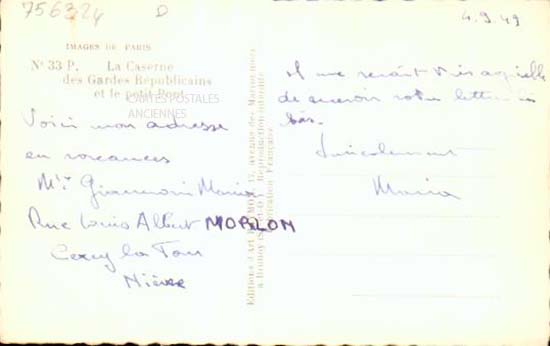 756324
D
4.9.49
IMAGES DE PARIS
N° 33 P. La Caserne
des Gardes Républicains
et le petit Pont
CARTES POSTALES
ANCIENNES
Voici mon adresse
en vacances
Maria
Rue Louis Albert MORLON
Cercy la Tour
Nièvre
Il me serait très agréable
de recevoir votre lettre là
bas.
Maria
Editions d'Art
17, avenue des
Reproduction interdite
Fabrication Française